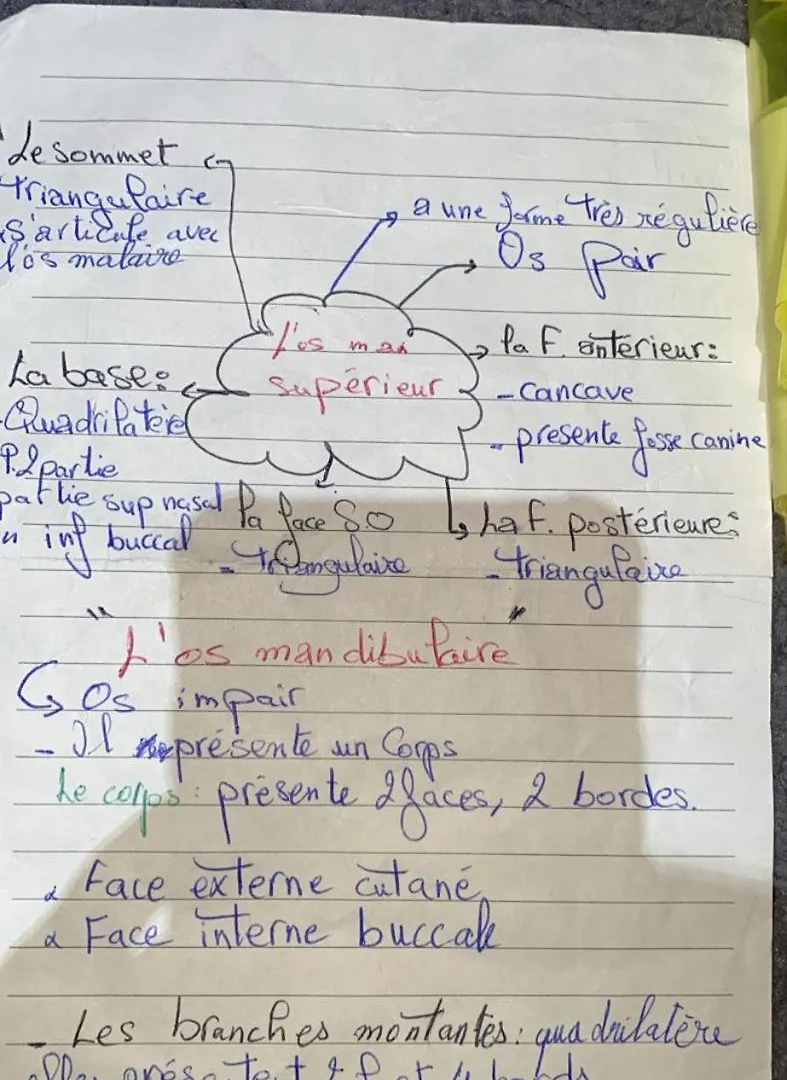 Le sommet
triangulaire
s'articule avec
l'os malaire
a une forme très régulière
Os pair
L'os max
supérieur
la F. antérieur:
- Cancave
- presente fosse canine
La base:
Quadrilatère
P. 2 partie
partie sup nasal
inf buccal
la face S.O
- triangulaire
La F. postérieure:
- triangulaire
" L'os mandibulaire "
Os impair
- Il représente un Corps
Le corps: présente 2 faces, 2 bordes.
Face externe cutané
Face interne buccale
- Les branches montantes: quadrilatère